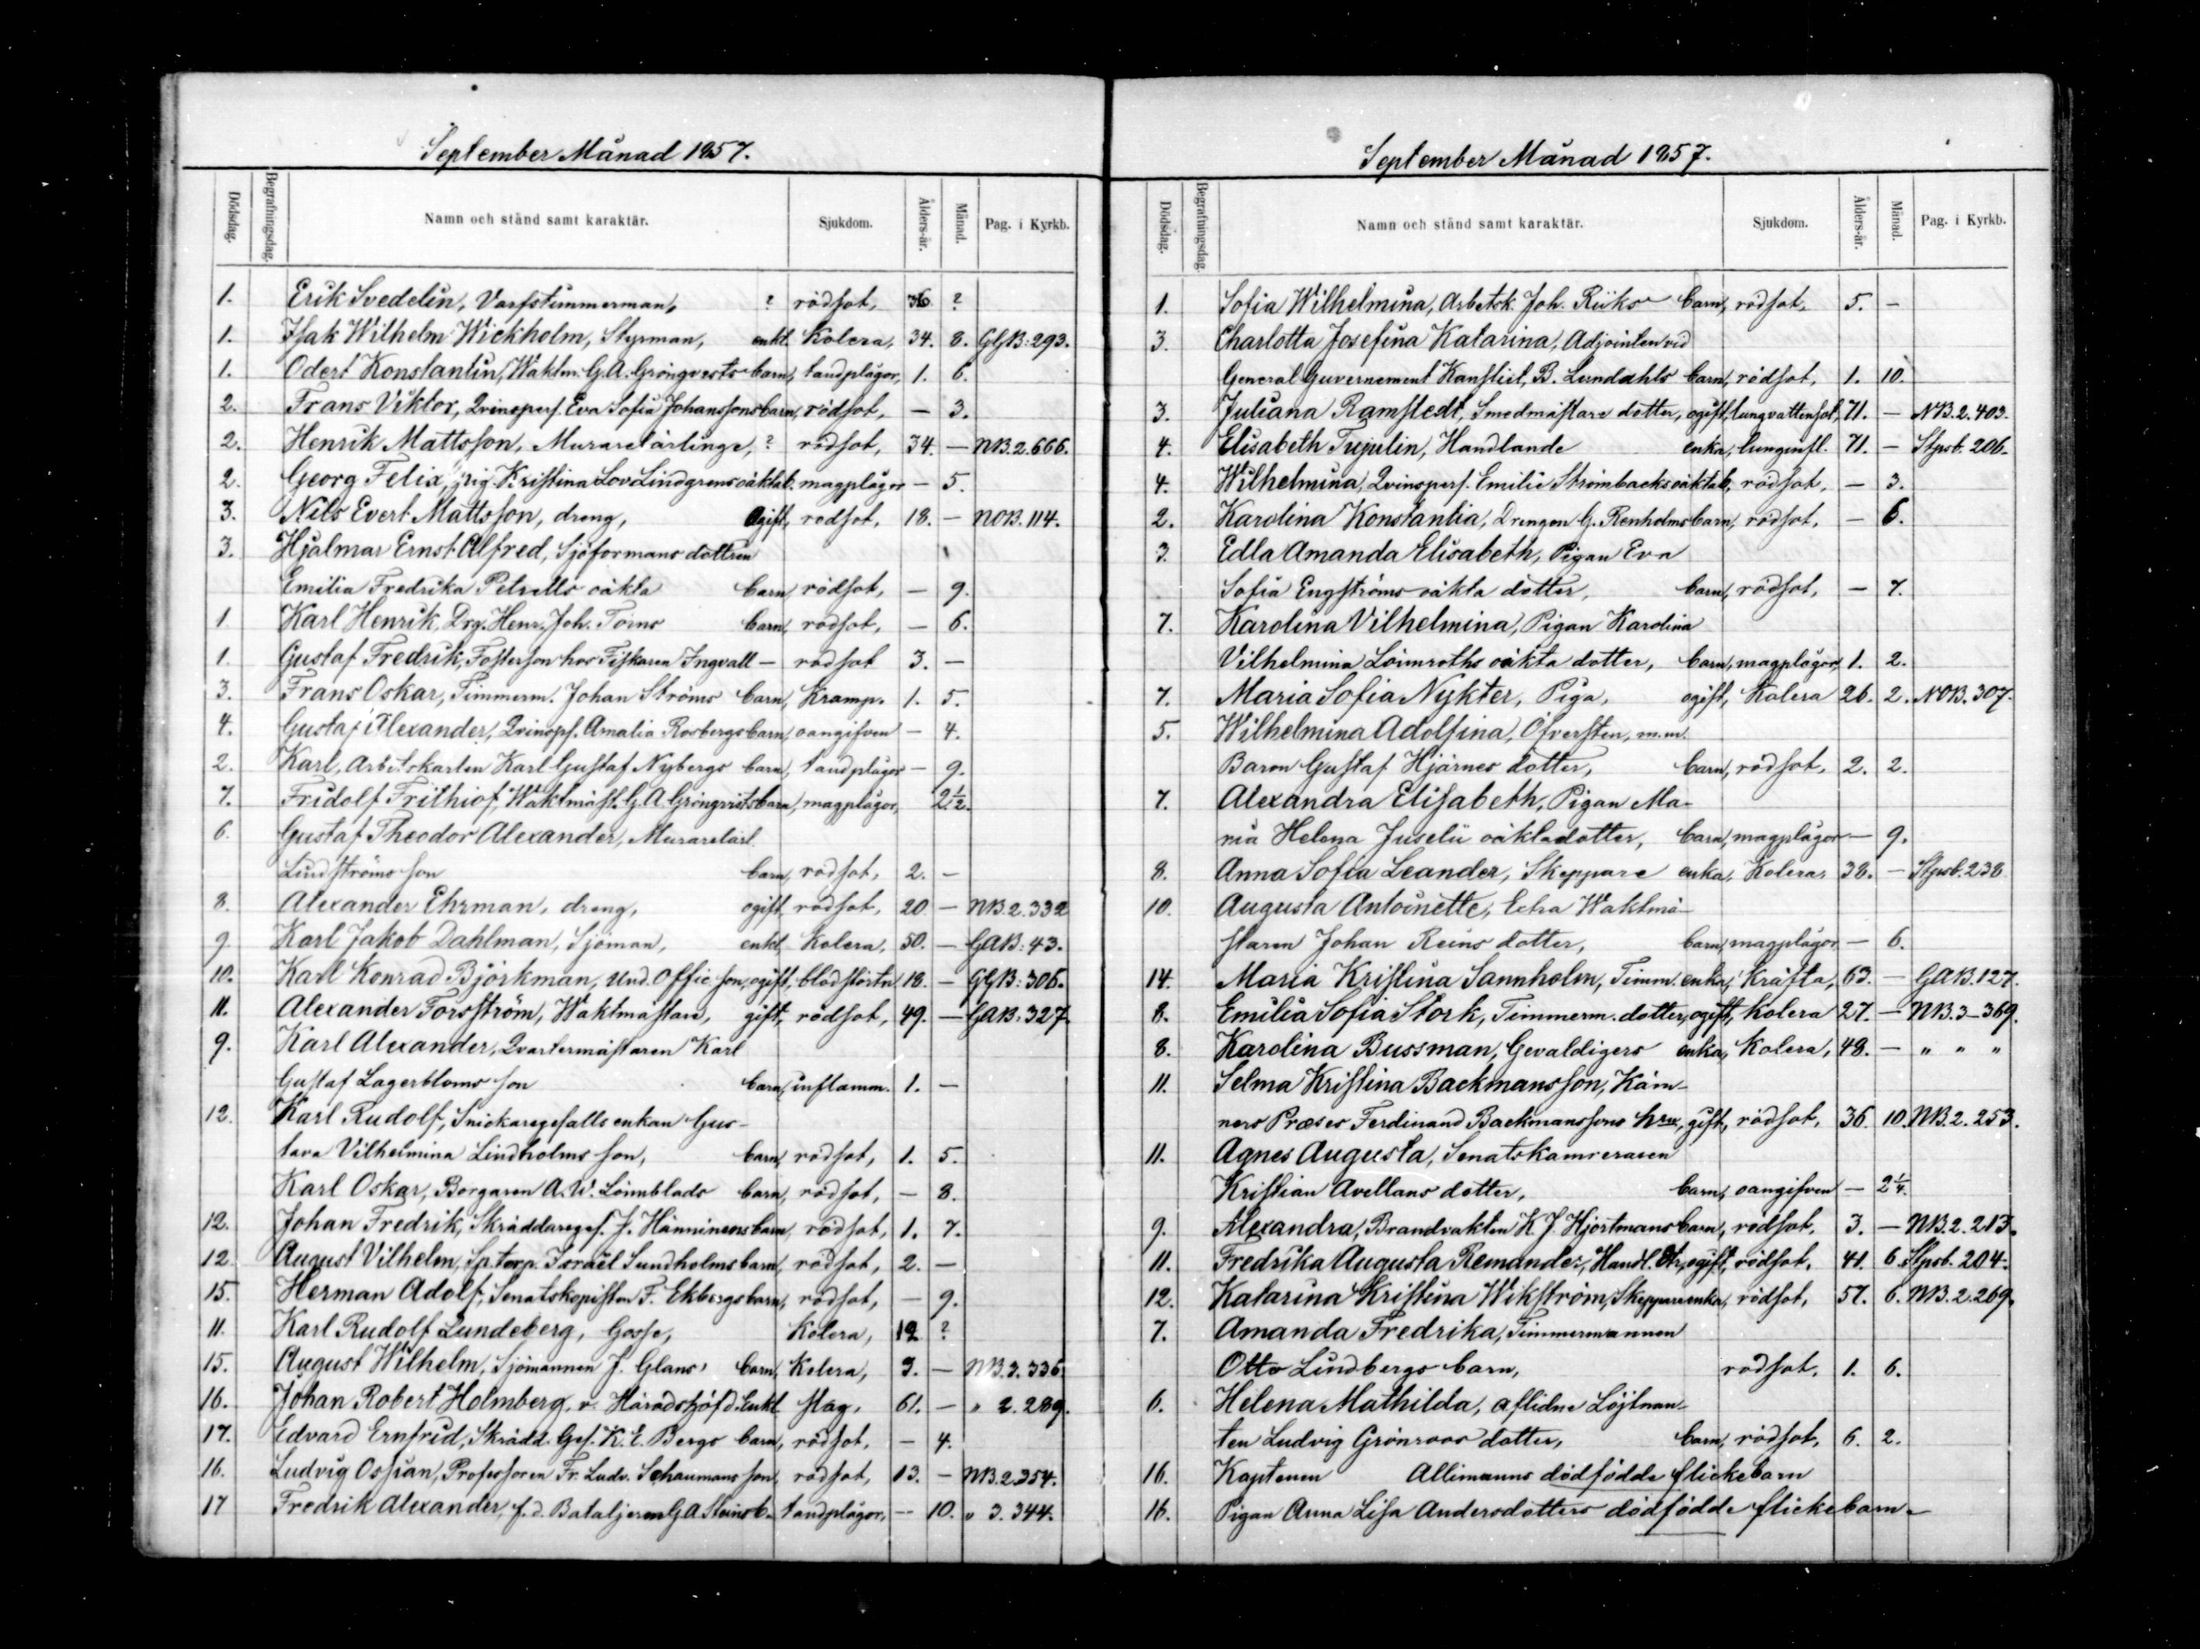 September Månad 1857.
Dödsdag. Begrafningsdag. Namn och stånd samt karaktär. Sjukdom. Ålders-år. Månad. Pag. i Kyrkb.
1. Erik Svedelin, Varfstimmerman, ? rödsot, 36 ?
1. Isak Wilhelm Wickholm, Styrman, enkl. Kolera, 34. 8. GGB: 293.
1. Odert Konstantin, Waktm. G. A. Gröngvists barn, tandplågor, 1. 6.
2. Frans Viktor, Qvinspers. Eva Sofia Johanssons barn, rödsot, — 3.
2. Henrik Mattsson, Murarelärlinge, ? rödsot, 34. — NB. 2. 666.
2. Georg Felix, pig. Kristina Lov. Lindgrens oäkta b. magplågor — 5.
3. Nils Evert Mattsson, dreng, ogift, rodsot, 18. — NOB. 114.
3. Hjalmar Ernst Alfred, Sjöformans dottren
Emilia Fredrika Petrells oäkta barn, rödsot, — 9.
1. Karl Henrik, Drg. Henr. Joh. Torns barn, rodsot, — 6.
1. Gustaf Fredrik, Fosterson hos Fiskaren Ingvall — rodsot 3. —
3. Frans Oskar, Timmerm. Johan Ströms barn, Kramp. 1. 5.
4. Gustaf Alexander, Qvinspf. Amalia Rosbergs barn, oangifven — 4.
2. Karl, Arbetskarlen Karl Gustaf Nybergs barn, tandplågor — 9.
7. Fridolf Frithiof, Waktmäst. G. A. Gröngvists barn, magplågor, 2½.
6. Gustaf Theodor Alexander, Murarelärl.
Lindströms son barn, rodsot, 2. —
8. Alexander Ehrman, dreng, ogift, rodsot, 20 — NB. 2. 332
9. Karl Jakob Dahlman, Sjöman, enkl. Kolera, 50. — GAB: 43.
10. Karl Konrad Björkman, Und. Offic. son, ogift, blodstörtn. 18. — GGB: 306.
11. Alexander Forsström, Waktmästare, gift, rödsot, 49. — GAB: 327.
9. Karl Alexander, Qvartermästaren Karl
Gustaf Lagerbloms son barn, inflamm. 1. —
12. Karl Rudolf, Snickaregesälls enkan Gus-
tava Vilhelmina Lindholms son, barn, rödsot, 1. 5.
Karl Oskar, Borgaren A. W. Lönnblads barn, rödsot, — 8.
12. Johan Fredrik, Skräddareges. J. Hänninens barn, rödsot, 1. 7.
12. August Vilhelm, Sp. torp. Israel Sundholms barn, rödsot, 2. —
15. Herman Adolf, Senatskopisten F. Ekbergs barn, rödsot, — 9.
11. Karl Rudolf Lundeberg, Gosse, Kolera, 12 ?
15. August Wilhelm, Sjömannen J. Glans' barn, Kolera, 3. — NB. 3. 336.
16. Johan Robert Holmberg, v. Häradshöfd. Enkl. slag. 61. — " 2. 289.
17. Edvard Ernfrid, Skrädd. Ges. K. E. Bergs barn, rödsot, — 4.
16. Ludvig Ossian, Professoren Fr. Ludv. Schaumans son, rodsot, 13. — NB. 2. 354.
17 Fredrik Alexander, f. d. Bataljeren G A Steins b. tandplågor, — 10. " 3. 344.
September Månad 1857.
Dödsdag. Begrafningsdag. Namn och stånd samt karaktär. Sjukdom. Ålders-år. Månad. Pag. i Kyrkb.
1. Sofia Wilhelmina, Arbetsk. Joh. Riiks barn, rödsot, 5. —
3. Charlotta Josefina Katarina, Adjointen vid
General Guvernement Kansliet, B. Lundahls barn, rödsot, 1. 10.
3. Juliana Ramstedt, Smedmästare dotter, ogift, lungvattensot, 71. — NB. 2. 403.
4. Elisabeth Tujulin, Handlande enka, lunginfl. 71. — Stpsb. 206.
4. Wilhelmina, Qvinspers. Emilie Strömbacks oäkta b, rödsot, — 3.
2. Karolina Konstantia, Drengen G. Renholms barn, rödsot, — 6.
3. Edla Amanda Elisabeth, Pigan Eva
Sofia Engströms oäkta dotter, barn, rödsot, — 7.
7. Karolina Vilhelmina, Pigan Karolina
Vilhelmina Loimroths oäkta dotter, barn, magplågor, 1. 2.
7. Maria Sofia Nykter, Piga, ogift, Kolera 26. 2. NOB. 307.
5. Wilhelmina Adolfina, Öfversten, m.m.
Baron Gustaf Hjärnes dotter, barn, rödsot, 2. 2.
7. Alexandra Elisabeth, Pigan Ma-
ria Helena Juselii oäkta dotter, barn, magplågor — 9.
8. Anna Sofia Leander, Skeppare enka, Kolera, 38. — Stpsb. 238
10. Augusta Antoinette, Extra Waktmä-
staren Johan Reins dotter, barn, magplågor — 6.
14. Maria Kristina Sannholm, Timm. enka, Kräfta, 63. — GAB. 127.
8. Emilia Sofia Stork, Timmerm. dotter, ogift, Kolera 27. — NB. 3 - 369.
8. Karolina Bussman, Gevaldigers enka, Kolera, 48. — " " "
11. Selma Kristina Backmansson, Käm-
ners Præses Ferdinand Backmanssons hru, gift, rödsot, 36 10. NB. 2. 253.
11. Agnes Augusta, Senatskamreraren
Kristian Avellans dotter, barn, oangifven — 2¼.
9. Alexandra, Brandvakten K. J. Hjortmans barn, rödsot, 3. — NB. 2. 213.
11. Fredrika Augusta Remander, Handl. dtr, ogift, rödsot, 41. 6. Stpsb. 204.
12. Katarina Kristina Wikström, Skeppare enka, rödsot, 57. 6. NB. 2. 269.
7. Amanda Fredrika, Timmermannen
Otto Lindbergs barn, rodsot, 1. 6.
6. Helena Mathilda, aflidne Löjtnan-
ten Ludvig Grönroos dotter, barn, rödsot, 6. 2.
16. Kaptenen Allimanns dödfödde flickebarn
16. Pigan Anna Lisa Andersdotters dödfödde flickebarn.